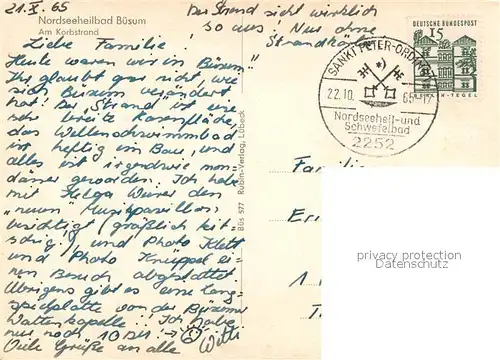 21.X.65
Nordseeheilbad Büsum
Am Korbstrand
Der Strand sieht wirklich
so aus! Nur ohne
Strandkorb
Liebe Familie,
Heute waren wir in Büsum.
Ihr glaubt gar nicht, wie
sich Büsum verändert
hat! Der "Strand" ist eine
sehr breite Rasenfläche,
das Wellenschwimmbad
ist heftig im Bau, und
alles ist irgendwie mon-
däner geworden. Ich habe
mit Helga den
"neuen Musikpavillon"
besichtigt (gräßlich kit-
schig), und Photo Klett
und Photo Knüppel ei-
nen Besuch abgestattet.
Übrigens gibt es eine Lang-
spielplatte von der Büsumer
Wattenkapelle! Ich habe
nur noch 10 DM
Viele Grüße an alle Willi
Büs 577 Rubin-Verlag, Lübeck
DEUTSCHE BUNDESPOST
15
TEGEL
SANKT PETER-ORDING
22.10. 65-17
Nordseeheil- und
Schwefelbad
2252
Fam
Er
1
T
privacy protection
Datenschutz